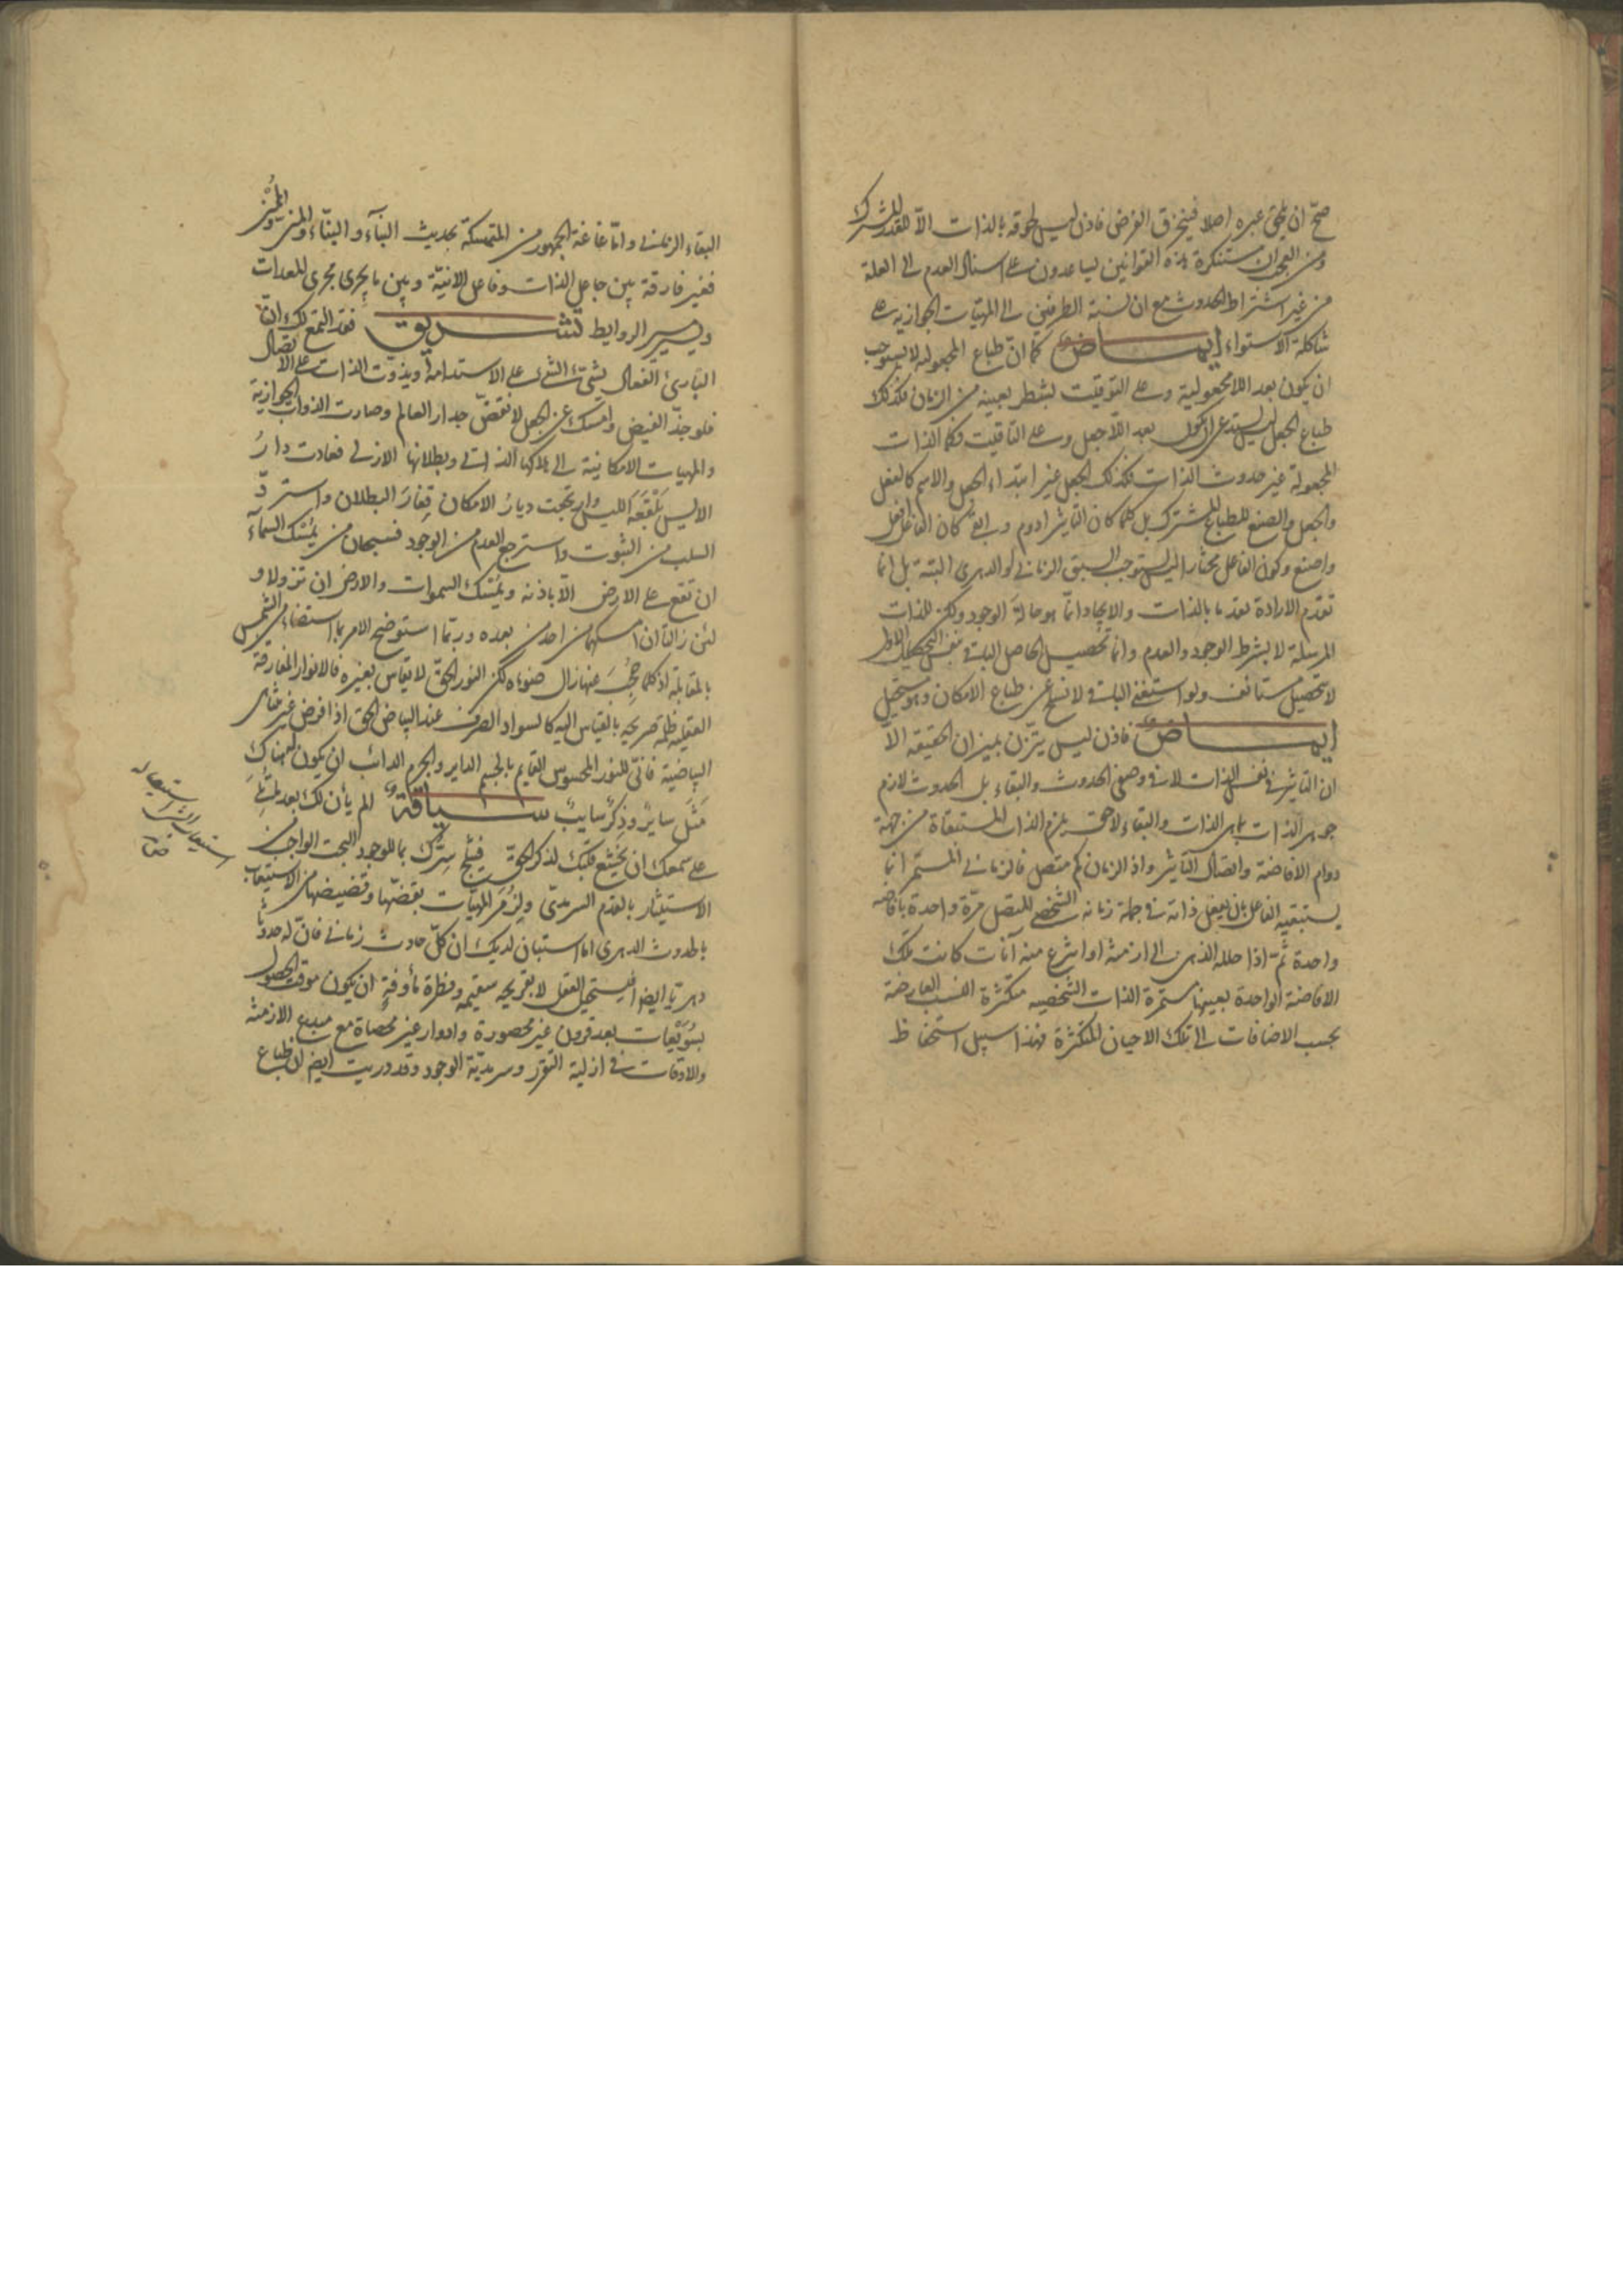 صحّ ان يلحق غيره اصلا فينخرق الفرض فاذن ليس لحوقه بالذات الّا للقدر المشترك
ومن العجب ان مستنكرة هذه القوانين يساعدون على استناد العدم الى العلة
من غير اشتراط الحدوث مع ان نسبة الطرفين الى المهيّات الجوازية على
شاكلة الاستواء ايماض كما انّ طباع المجعولية لا يستوجب
ان يكون بعد اللامجعولية وعلى التوقيت بشطر بعينه من الزمان فكذلك
طباع الجعل ليس يستدعى ان يكون بعد اللاجعل وعلى التاقيت فكما الذات
المجعولة غير حدوث الذات فكذلك الجعل غير ابتداء الجعل والاسم كالفعل
والجعل والصنع للطباع المشترك بل كلما كان التاثير ادوم كان الفاعل افعل
واصنع وكون الفاعل مختارا ليس يستوجب السبق الزمانى او الدهرى البتة بل انما
تقدم الارادة تقدما بالذات والايجاد انما هو حالة الوجود ولكن للذات
المرسلة لا بشرط الوجود والعدم وانما تحصيل الحاصل البات بنفس التحصيل الاول
لا بتحصيل مستانف ولو استغنى البات لانسلخ عن طباع الامكان وهو مستحيل
ايماض فاذن ليس يتزن بميزان الحقيقة الّا
ان التاثير فى نفس الذات لا فى وصفى الحدوث والبقاء بل الحدوث لازم
جوهر الذات بما هى الذات والبقاء لاحق يلزم الذات المستبقاة من جهة
دوام الافاضة واتصال التاثير واذ الزمان كم متصل فالزمانى المستمر انما
يستبقيه الفاعل بان يفعل ذاته فى جملة زمانه الشخصى المتصل مرّة واحدة بافاضة
واحدة ثمّ اذا حلله الذهن الى ازمنة او انتزع منه آنات كانت تلك
الافاضة الواحدة بعينها مستمرة الذات الشخصية متكثرة النسب العارضة
بحسب الاضافات الى تلك الاحيان المتكثرة فهذا سبيل استحفاظ
البقاء الزمانى وامّا غاغة الجمهور من المتمسكة بحديث البنآء والبنّاء والمنى
فغير فارقة بين جاعل الذات وفاعل الانيّة وبين ما يجرى مجرى المعدات
الروابط تشريق فقد التمع لك انّ
البارئ الفعال يشيّئ الشئ على الاستدامة ويذوّت الذات على الاتصال
فلو جذّ الفيض وامسك عن الجعل لانقضّ جدار العالم وصارت الذوات الجوازية
والمهيات الامكانية الى هلاكها الذاتى وبطلانها الازلى فعادت دارُ
الايس بلقعة الليس وارتجت ديارُ الامكان قفارَ البطلان واسترقّ
السلب من الثبوت واسترجع العدم من الوجود فسبحان من يمسك السمآء
ان تقع على الارض الّا باذنه ويمسك السموات والارض ان تزولا و
لئن زالتا ان امسكهما من احد من بعده وربّما استوضح الامر باستضاءة الشمس
بالمقابلة اذ كلما حُجِبَ عنها زال ضوءه لكن النور الحق لا يقاس بغيره فالانوار المفارقة
العقلية ظلمة صريحة بالقياس اليه كالسواد الصرف عند البياض الحق اذا فرض غير متناهى
البياضية فانّى للنور المحسوس القايم بالجسم الداير والجرم الدائب ان يكون له هناك
مَثَل ساير وذِكرٌ سايب سياقة الم يأن لك بعد
على سمعك ان يخشع قلبك لذكر الحق فيثلج سِرّك بما للوجود البحت الواجب من
الاستيثار بالقدم السرمدى ولزُمَر المهيّات بقضّها وقضيضها من الاستيعاب
بالحدوث الدهرى اما استبان لديك ان كلّ حادث زمانى فان له حدوثا
دهريّا ايضا فليستحيل العقل لا بقريحة سقيمة وفطرة مأوفةٍ ان يكون موقت الحصول
بعد قرون غير محصورة وادوار غير محصاة مع مبدع الازمنة
والاوقات فى ازلية التقرّر وسرمديّة الوجود وقد دريت ايضا ان طباع